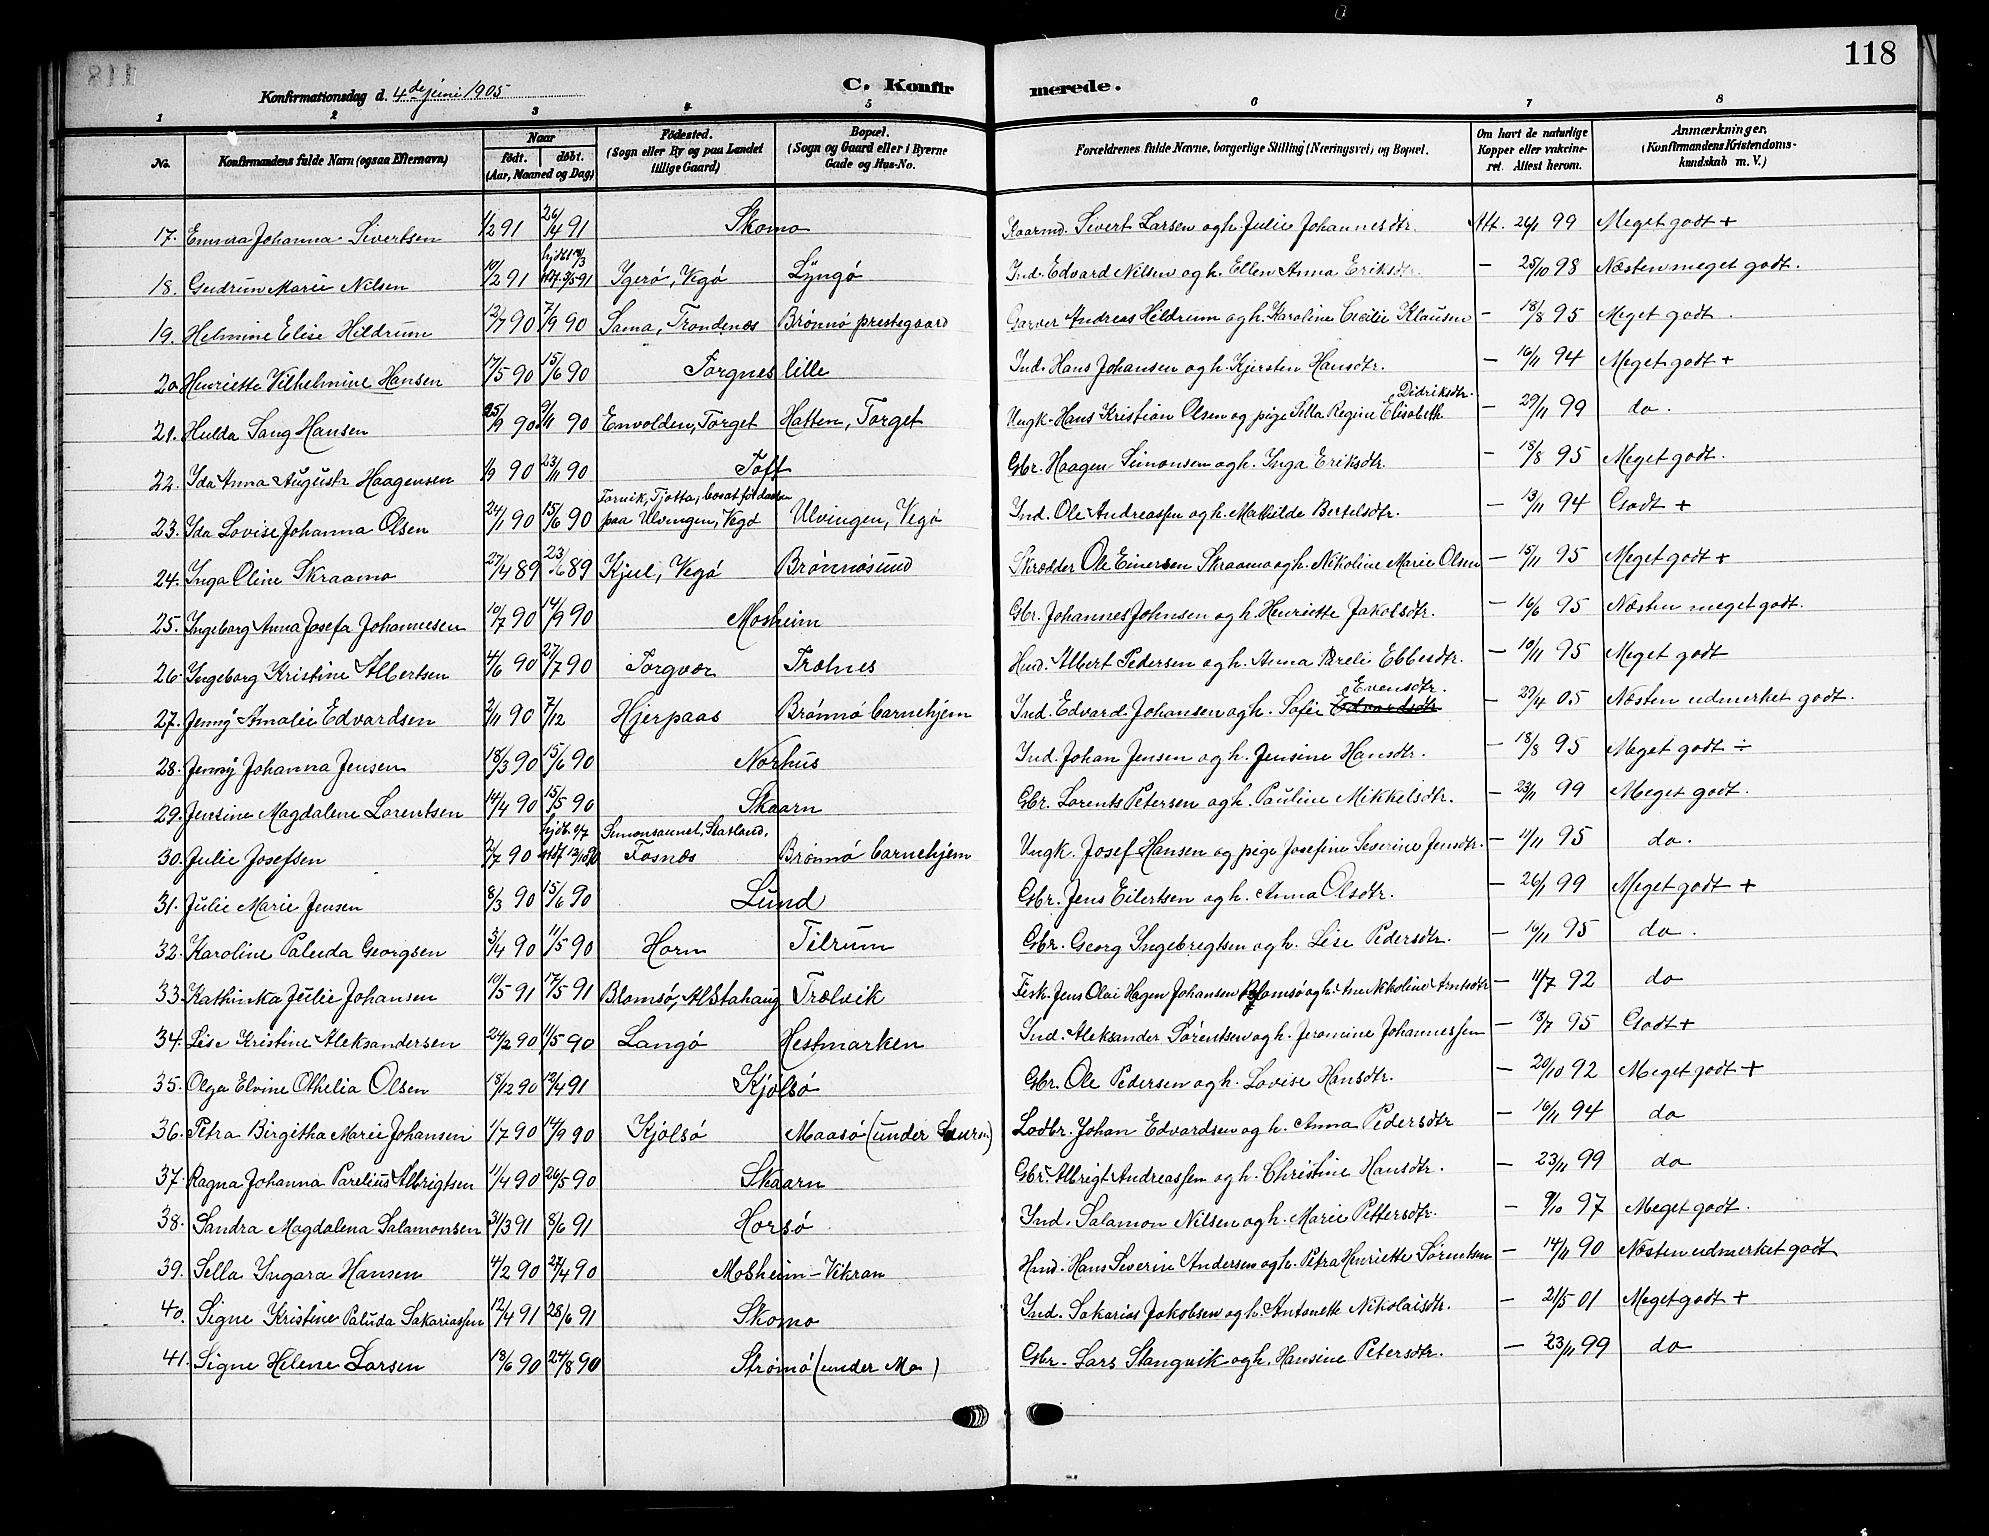 118
Konfirmationsdag d. 4de juni 1905
C. Konfirmerede.
1 2 3 4 5 6 7 8
No. Konfirmandens fulde Navn (ogsaa Efternavn) Naar født. døbt. (Aar, Maaned og Dag) Fødested. (Sogn eller By og paa Landet tillige Gaard) Bopæl. (Sogn og Gaard eller i Byerne Gade og Hus-No. Forældrenes fulde Navne, borgerlige Stilling (Næringsvei) og Bopæl. Om havt de naturlige Kopper eller vakcineret. Attest herom. Anmærkninger. (Konfirmandens Kristendomskundskab m. V.)
17. Emma Johanna Sivertsen 1/2 91 26/4 91 Skomo Kaarmd. Sivert Larsen og h. Julie Johannesdtr. Att. 26/1 99 Meget godt +
18. Gudrun Marie Nilsen 10/2 91 hjdbt stf. 3/5 91 Ygerø, Vegø Lyngø Ind. Edvard Nilsen og h. Ellen Anna Eriksdtr. — 25/10 98 Næsten meget godt.
19. Helmine Elise Hildrum 12/7 90 7/9 90 Sama, Trondenæs Brønnø prestegaard Garver Andreas Hildrum og h. Karoline Cecilie Klausen — 18/8 95 Meget godt.
20. Henriette Vilhelmine Hansen 17/5 90 15/6 90 Torgnes lille Ind. Hans Johansen og h. Kjersten Hansdtr. — 16/11 94 Meget godt +
21. Hulda Sang Hansen 25/9 90 9/11 90 Envolden, Torget Hatten, Torget Ungk. Hans Kristian Olsen og pige Silla Regine Elisabeth Didriksdtr. — 29/11 99 do.
22. Ida Anna Augusta Haagensen 1/9 90 23/11 90 Toft Gbr. Haagen Simonsen og h. Inga Eriksdtr. — 18/8 95 Meget godt.
23. Ida Lovise Johanna Olsen 24/1 90 15/6 90 Forvik, Tjøtta, bosat för daaben paa Ulvingen, Vegø Ulvingen, Vegø Ind. Ole Andreassen og h. Mathilde Bertelsdtr. — 13/11 94 Godt +
24. Inga Oline Skraamo 27/4 89 23/6 89 Kjul, Vegø Brønnøsund Skrædder Ole Einersen Skraamo og h. Nikoline Marie Olsen — 15/11 95 Meget godt +
25. Ingeborg Anna Josefa Johannesen 10/7 90 14/9 90 Mosheim Gbr. Johannes Johnsen og h. Henriette Jakobsdtr. — 16/6 95 Næsten meget godt.
26. Ingeborg Kristine Albertsen 4/6 90 27/7 90 Torgvær Trælnes Husd. Albert Pedersen og h. Anna Parelie Ebbesdtr. — 10/11 95 Meget godt
27. Jenny Amalie Edvardsen 2/11 90 7/12 Hjerpaas Brønnø barnehjem Ind. Edvard Johansen og h. Sofie Edvardsdtr Evensdtr. — 29/4 05. Næsten udmerket godt.
28. Jenny Johanna Jensen 18/3 90 15/6 90 Norhus Ind. Johan Jensen og h. Jensine Hansdtr. — 18/8 95 Meget godt ÷
29. Jensine Magdalene Lorentsen 14/4 90 15/5 90 Skaarn Gbr. Lorents Petersen og h. Pauline Mikkelsdtr. — 23/11 99 Meget godt.
30. Julie Josefsen 2/7 90 hjdb. 6/7 stdf. Simonsaunet, Statland, Fosnæs Brønnø barnehjem Ungk. Josef Hansen og pige Josefine Severine Jensdtr. — 11/11 95 do.
31. Julie Marie Jensen 8/3 90 15/6 90 Lund Gbr. Jens Eilertsen og h. Anna Olsdtr. — 26/1 99 Meget godt +
32. Karoline Paluda Georgsen 3/4 90 11/5 90 Horn Tilrum Gbr. Georg Ingebregtsen og h. Lise Pedersdtr. — 16/11 95 do.
33. Kathinka Julie Johansen 10/5 91 17/5 91 Blomsø, Alstahaug Trælvik Fisk. Jens Olai Hagen Johansen Blomsø og h. Ane Nikoline Arntsdtr — 11/7 92 do
34. Lise Kristine Aleksandersen 24/2 90 11/5 90 Langø Hestmarken Ind. Aleksander Sørentsen og h. Jeromine Johannessen — 13/7 95 Godt +
35. Olga Elvine Othelia Olsen 18/12 90 12/4 91 Kjølsø Gbr. Ole Pedersen og h. Lovise Hansdtr. — 20/10 92 Meget godt +
36. Petra Birgitha Marie Johansen 1/7 90 14/9 90 Kjølsø Maasø (under Saurn) Lodbr. Johan Edvardsen og h. Anna Pedersdtr — 16/11 94 do
37. Ragna Johanna Parelius Albrigtsen 11/4 90 26/5 90 Skaarn Gbr. Albrigt Andreassen og h. Christine Hansdtr. — 23/11 99 do
38. Sandra Magdalena Salamonsen 31/3 91 8/6 91 Horsø Ind. Salamon Nilsen og h. Marie Pettersdtr. — 9/10 97 Meget godt.
39. Sella Yngara Hansen 4/2 90 27/4 90 Mosheim-Vikran Hand. Hans Severin Andersen og h. Petra Henriette Sørentsen — 14/11 90 Næsten udmerket godt
40. Signe Kristine Paluda Sakariassen 12/4 91 28/6 91 Skomo Ind. Sakarias Jakobsen og h. Antonette Nikolaisdtr. — 21/5 01 Meget godt +
41. Signe Helene Larsen 13/6 90 24/8 90 Strømø (under Mo) Gbr. Lars Stangvik og h. Hansine Petersdtr. — 23/11 99 do